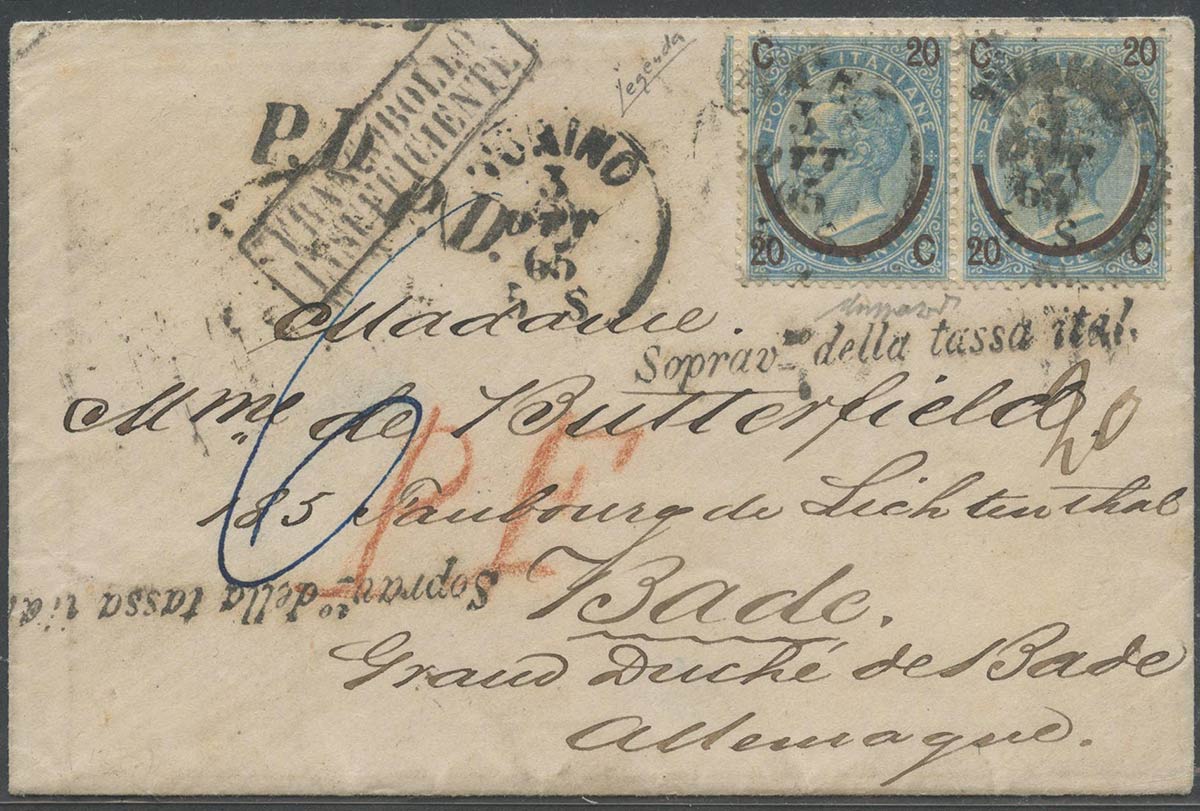 FRANCOBOLLO
INSUFFICIENTE
P.D.
TORINO
3
OTT
65
S
C 20
POSTE ITALIANE
20 C
C 20
20 C
3
OTT
65
S
Soprav.to della tassa ital.
Madame.
Mme de Butterfield.
20
185 Faubourg de Lichtenthal
P.F
6
Soprav.to della tassa ital.
Bade.
Grand Duché de Bade
Allemagne.